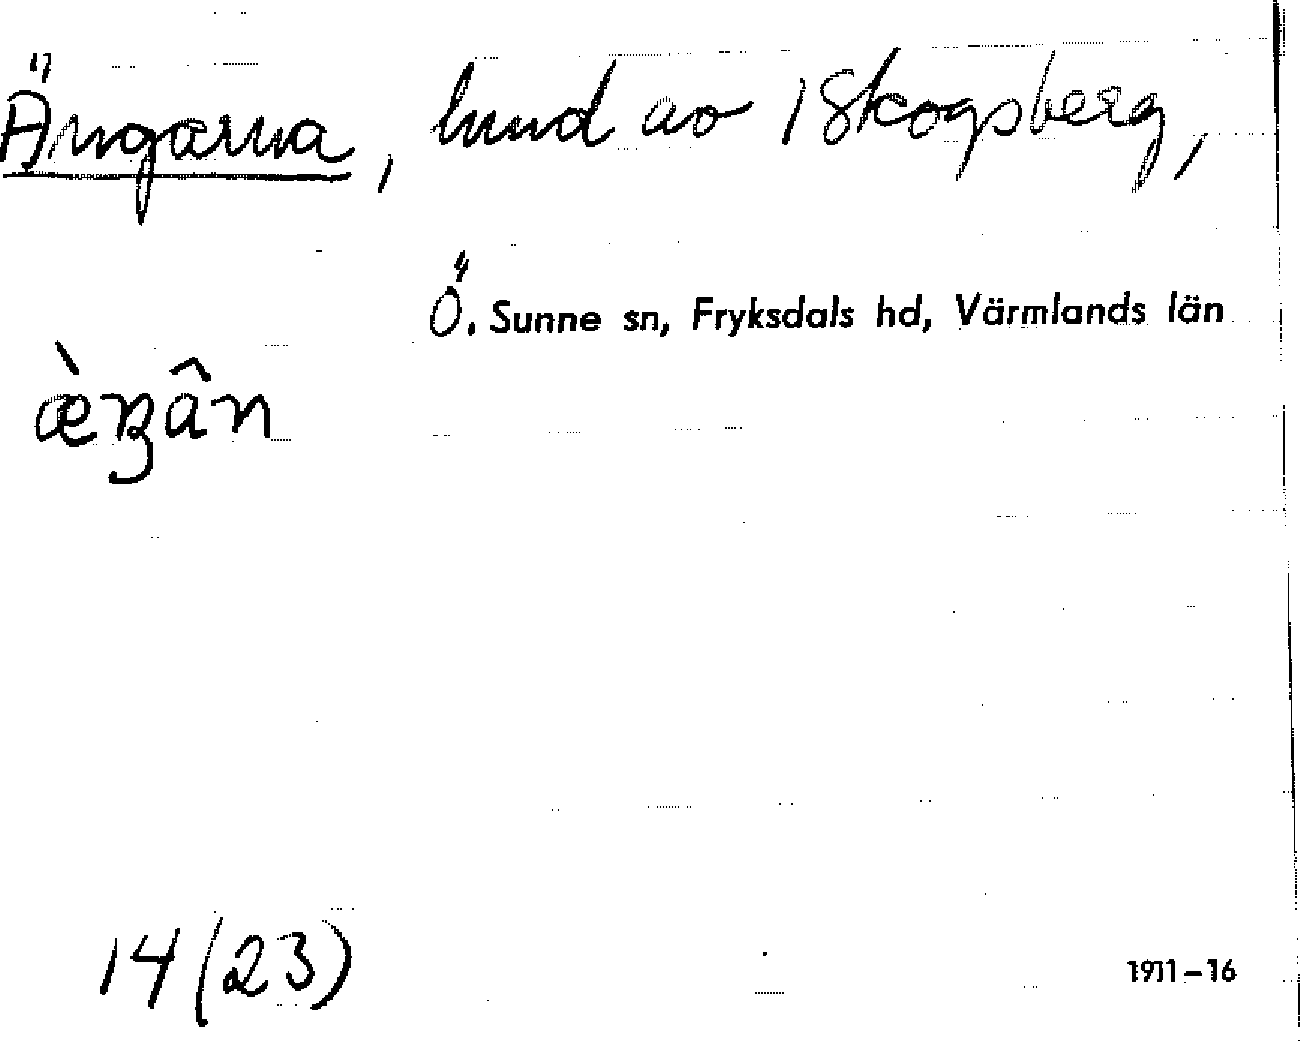 Ängarna, lund av 1 Skogsberg,
Ö. Sunne sn, Fryksdals hd, Värmlands län
æ̀ŋân
14 (23)
1911–16